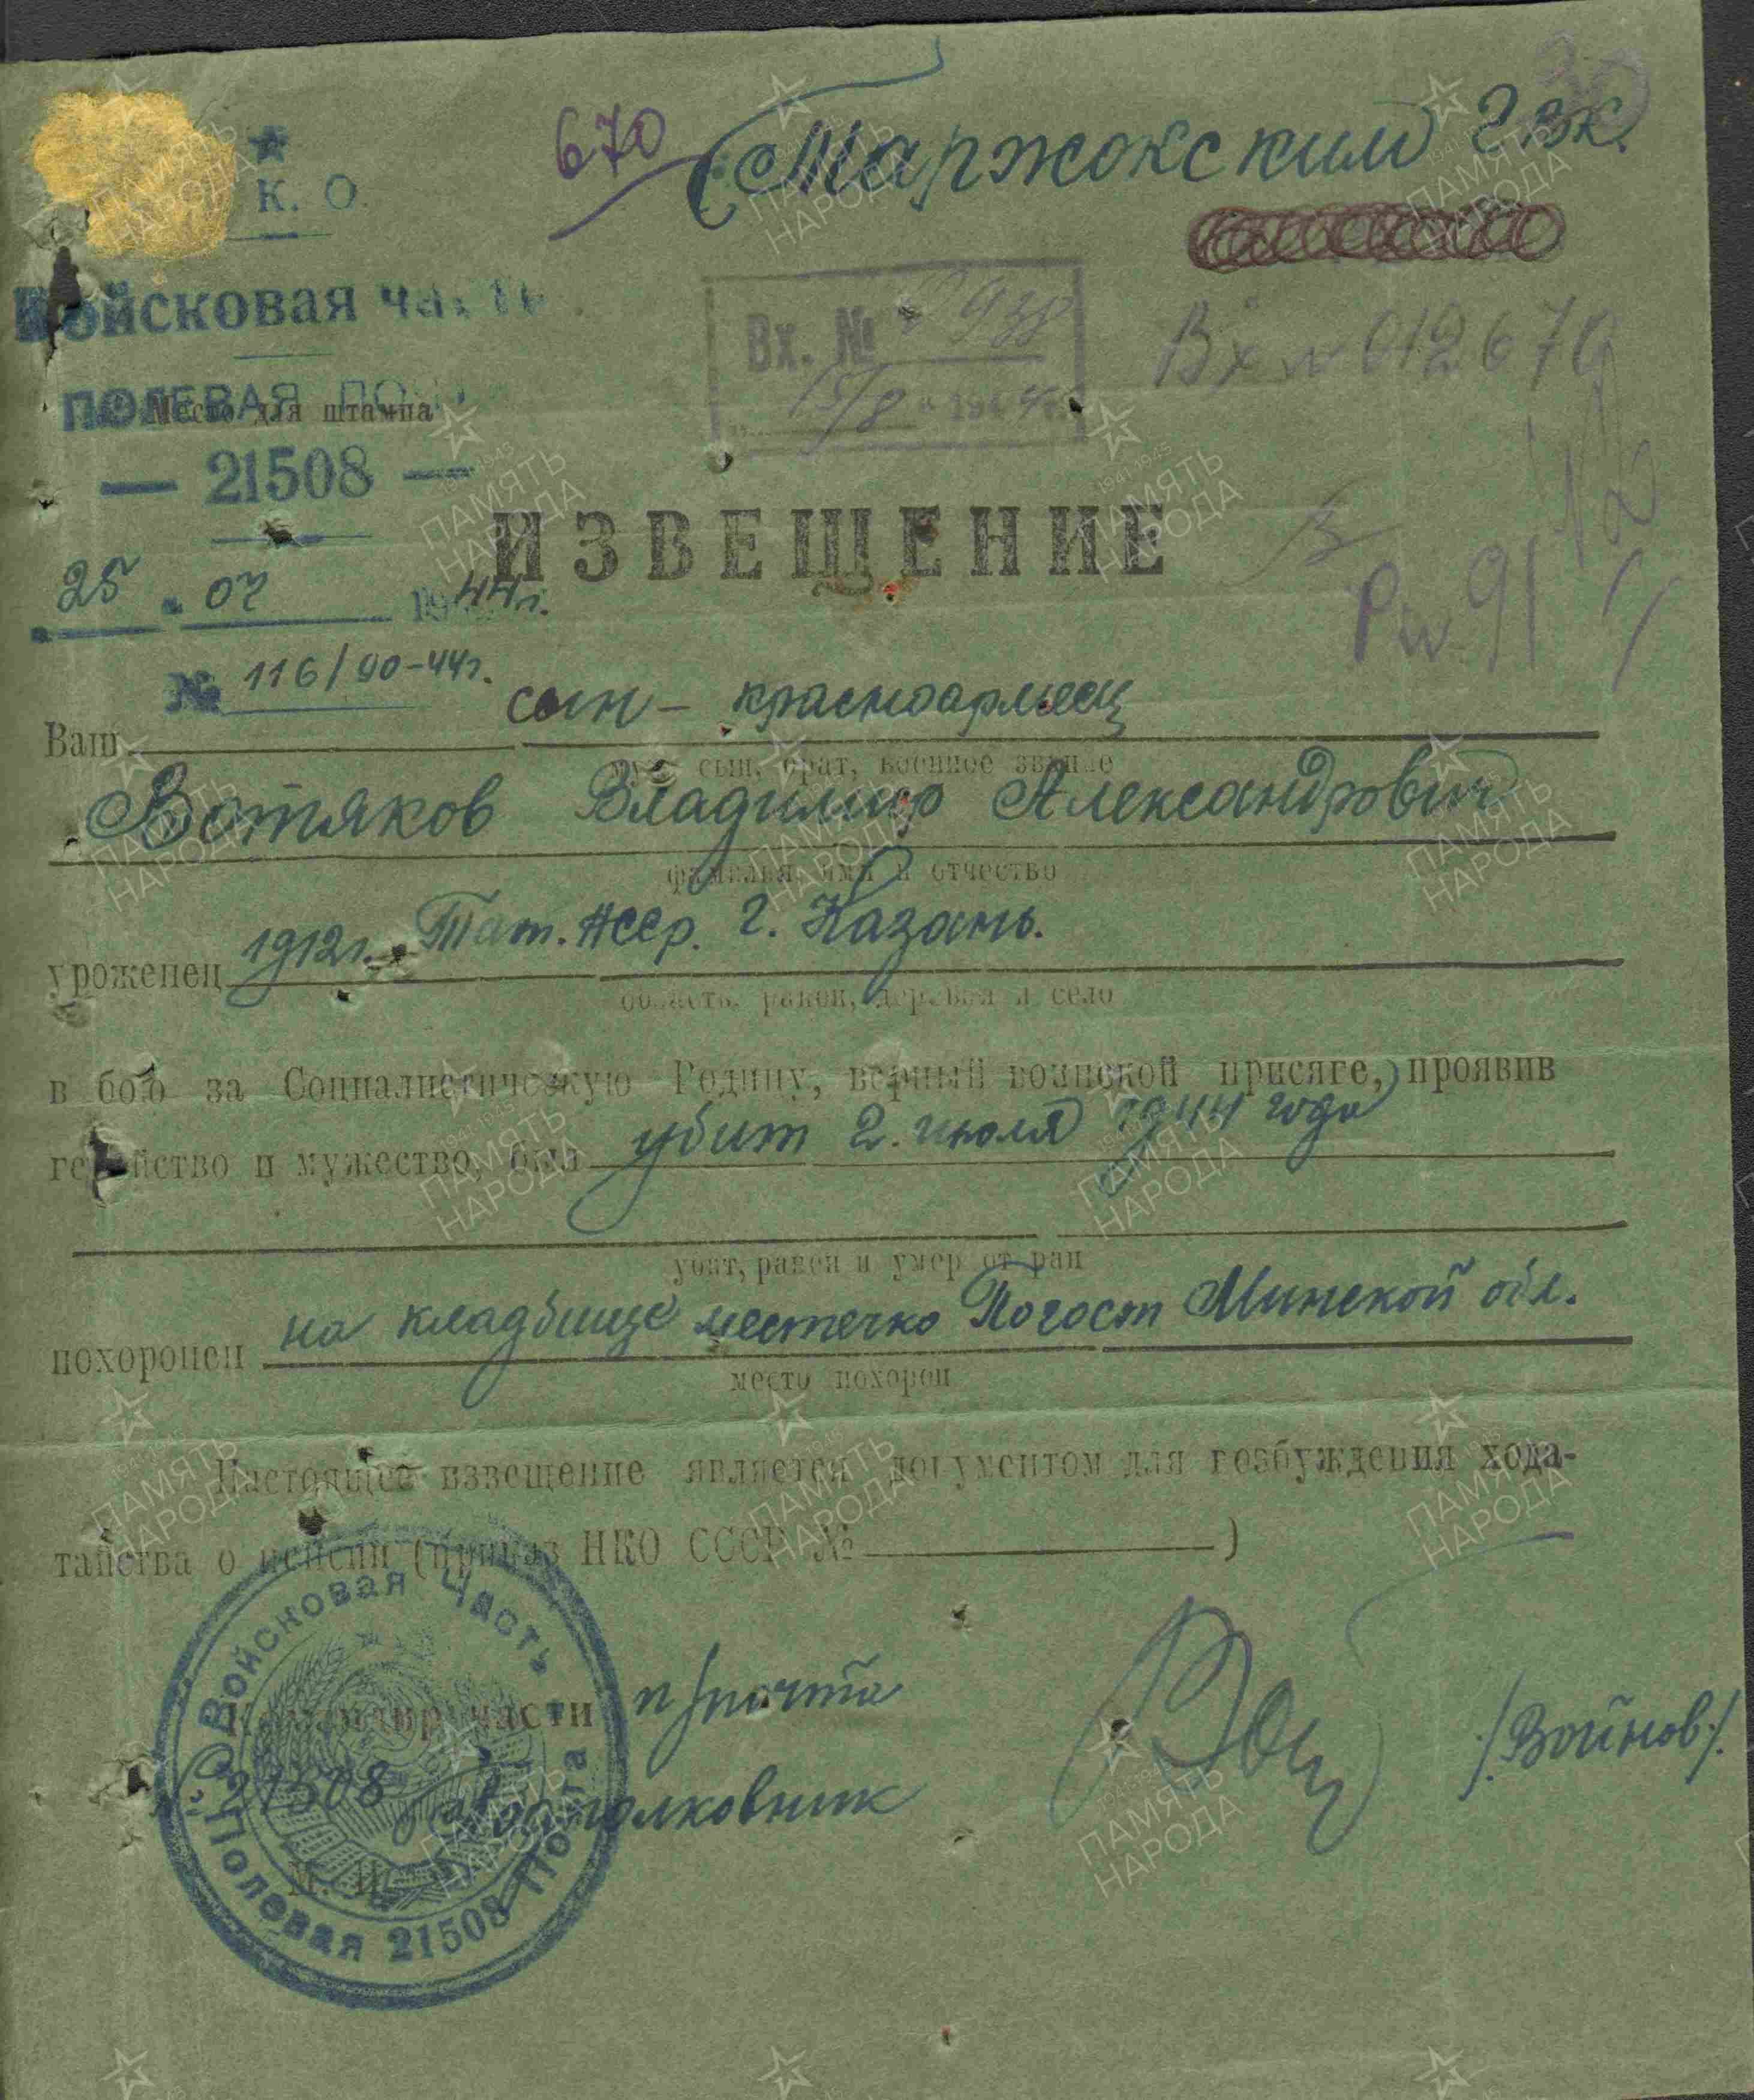 670
Таржокский ГВК.
К. О.
Войсковая часть
Вх. №
15/8 1944 г.
Вх № 012670
ПОЛЕВАЯ ПО
Место для штампа
— 21508 —
ИЗВЕЩЕНИЕ
25 . 07 1944г.
№ 116/90-44г.
Ваш сын - красноармеец
муж, сын, брат, военное звание
Вотяков Владимир Александрович
фамилия, имя и отчество
уроженец 1912г. Тат. АССР. г. Казань.
область, район, деревня и село
в бою за Социалистическую Родину, верный воинской присяге, проявив
геройство и мужество, был убит 2. июля 1944 года
убит, ранен и умер от ран
похоронен на кладбище местечко Погост Минской обл.
место похорон
Настоящее извещение является документом для возбуждения хода-
тайства о пенсии (приказ НКО СССР № )
Командир части п/почта
21508 Подполковник /Войнов/.
М. П.
Войсковая Часть
Полевая 21508 Почта
ПАМЯТЬ НАРОДА
1941-1945